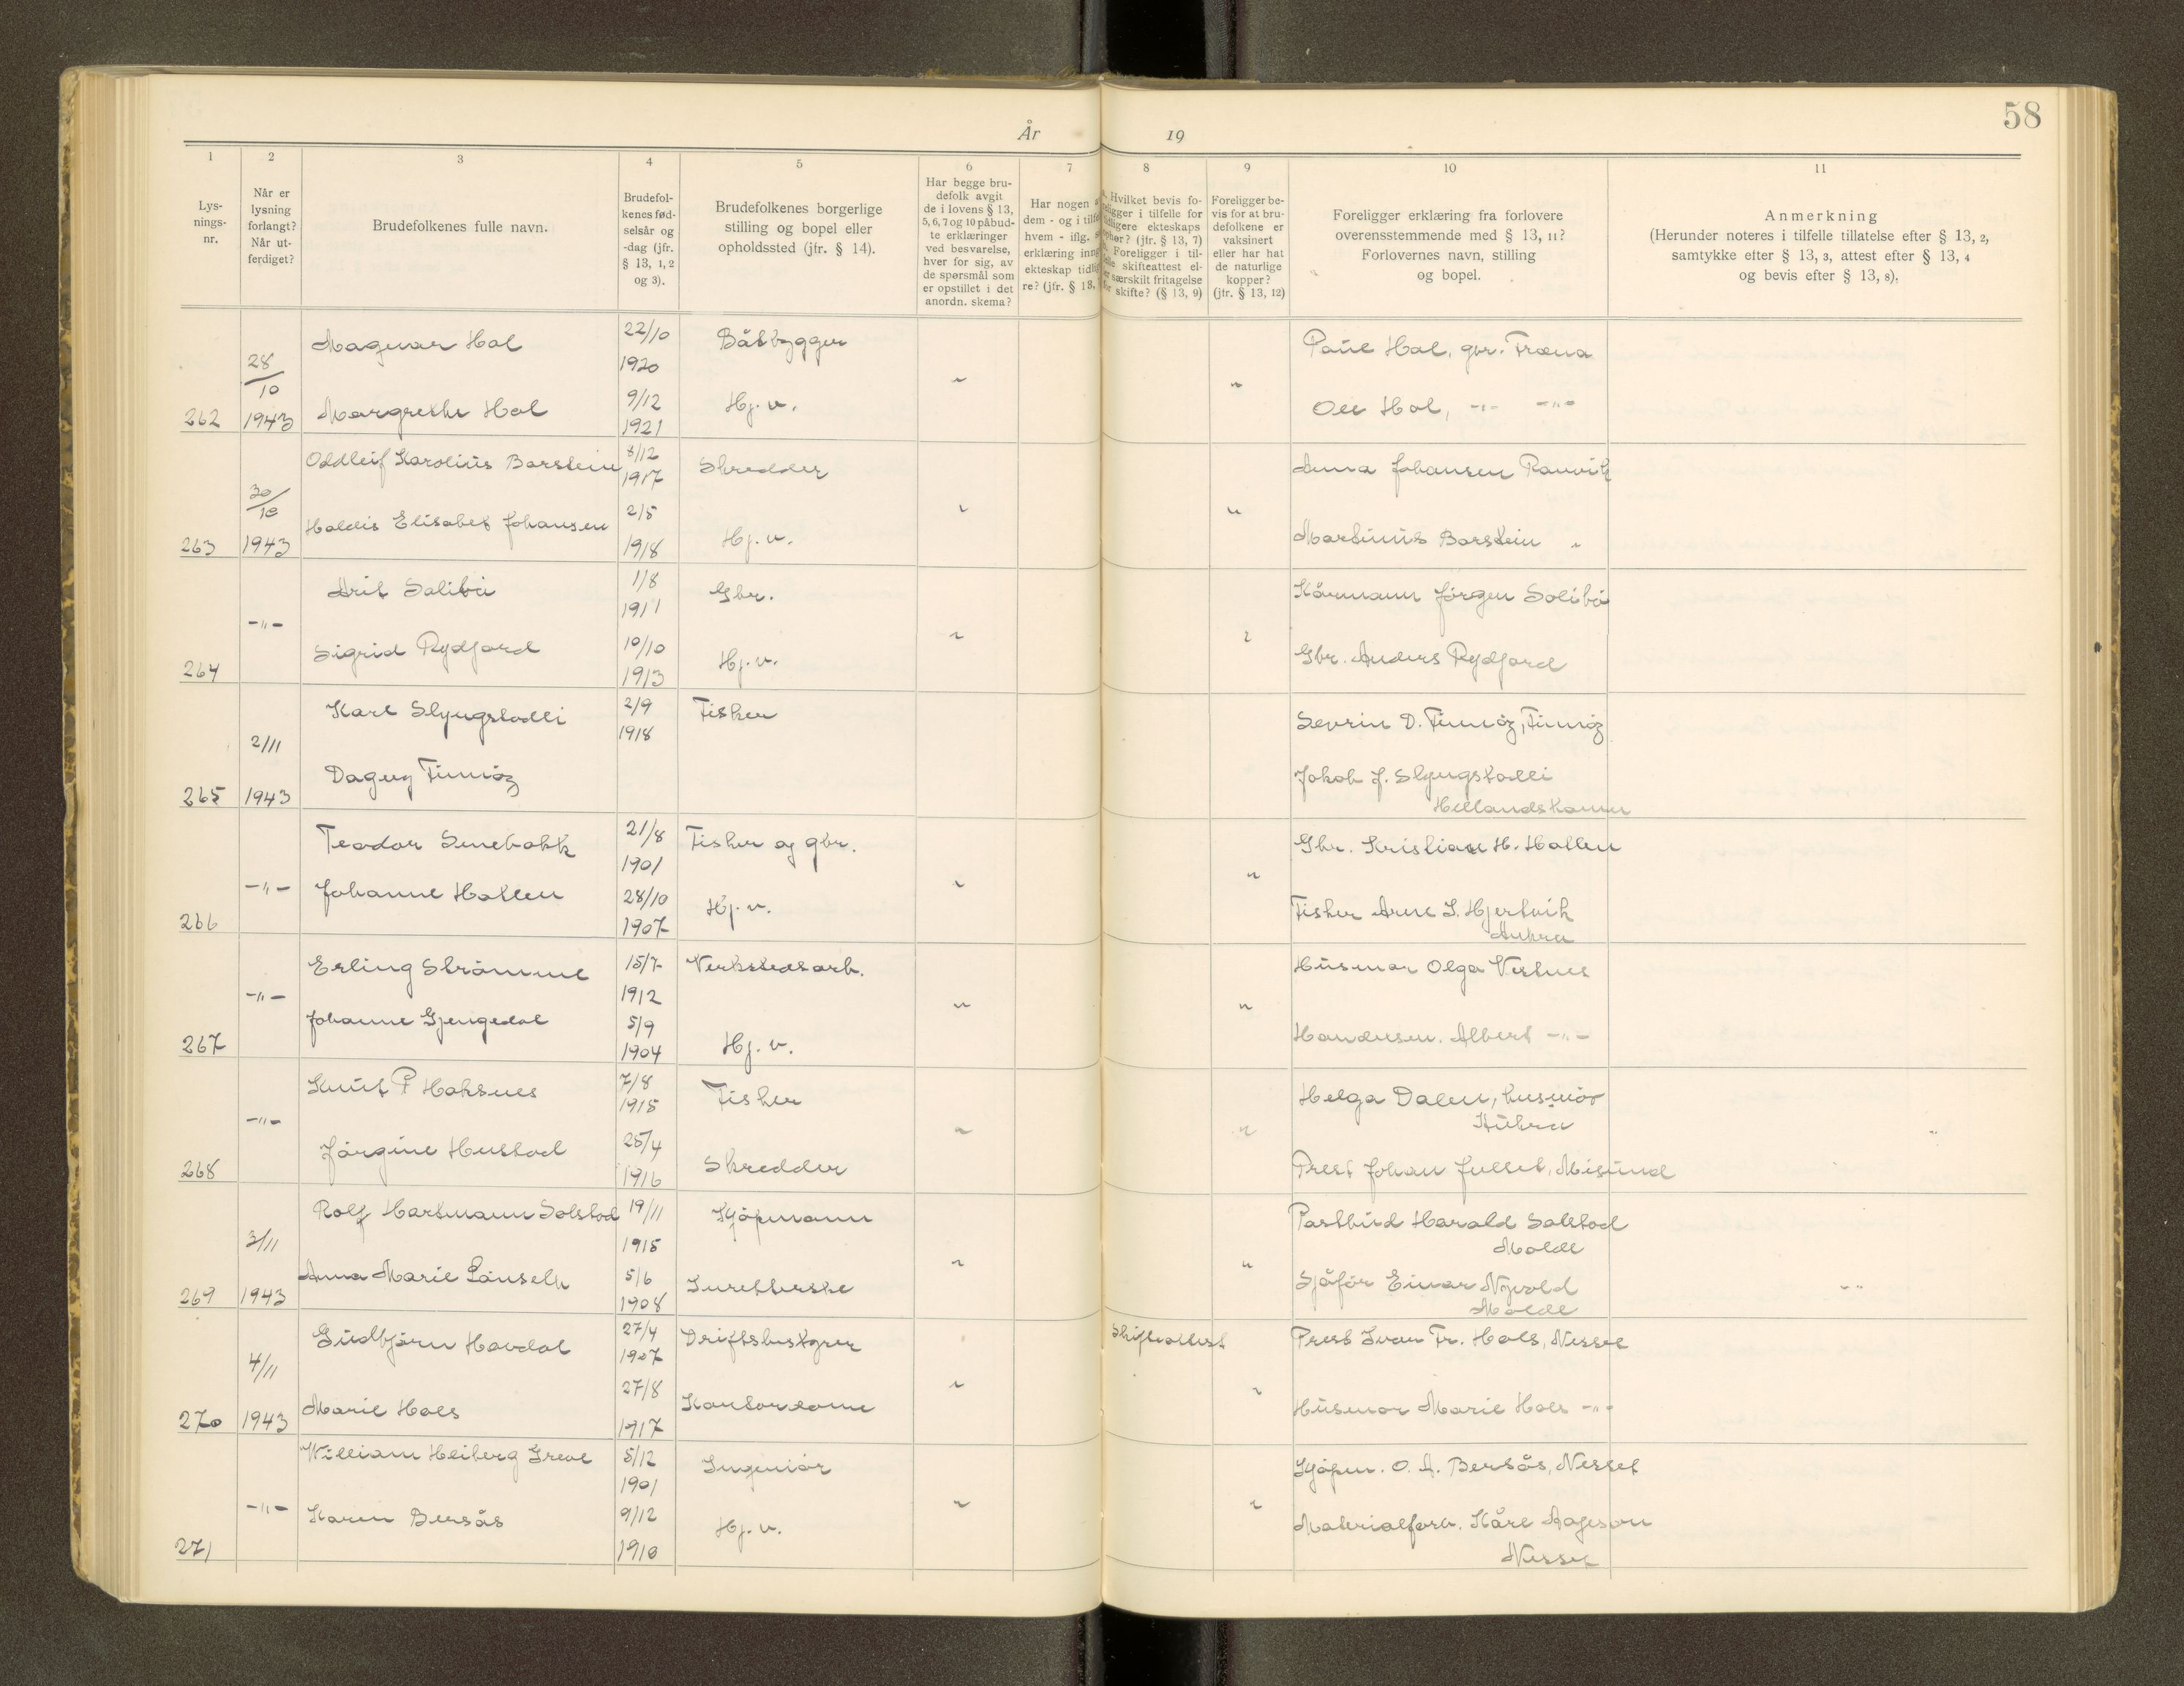 58
År 19
1 2 3 4 5 6 7 8 9 10 11
Lys-
nings-
nr.
Når er
lysning
forlangt?
Når ut-
ferdiget?
Brudefolkenes fulle navn.
Brudefol-
kenes fød-
selsår og
-dag (jfr.
§ 13, 1, 2
og 3).
Brudefolkenes borgerlige
stilling og bopel eller
opholdssted (jfr. § 14).
Har begge bru-
defolk avgit
de i lovens § 13,
5, 6, 7 og 10 påbud-
te erklæringer
ved besvarelse,
hver for sig, av
de spørsmål som
er opstillet i det
anordn. skema?
Har nogen
dem - og i tilfe
hvem - iflg.
erklæring inng
ekteskap tidli
re? (jfr. § 13,
Hvilket bevis fo-
religger i tilfelle for
tidligere ekteskaps
ophør? (jfr. § 13, 7)
Foreligger i til-
felle skifteattest el-
er særskilt fritagelse
for skifte? (§ 13, 9)
Foreligger be-
vis for at bru-
defolkene er
vaksinert
eller har hat
de naturlige
kopper?
(jfr. § 13, 12)
Foreligger erklæring fra forlovere
overensstemmende med § 13, 11?
Forlovernes navn, stilling
og bopel.
Anmerkning
(Herunder noteres i tilfelle tillatelse efter § 13, 2,
samtykke efter § 13, 3, attest efter § 13, 4
og bevis efter § 13, 8).
Magnar Hol 22/10 1920 Båtbygger Paul Hol, gbr. Fræna
262 28/10 1943 Margrethe Hol 9/12 1921 Hj. v. " Ole Hol, -"- -"-
Oddleif Karolius Barstein 8/12 1917 Skredder Anna Johansen Ranvik
263 30/10 1943 Haldis Elisabet Johansen 2/5 1918 Hj. v. " Martinus Barstein "
Arit 1/8 1911 Gbr. Kårmann Jörgen
264 -"- Sigrid Rydjord 10/10 1913 Hj. v. Gbr. Anders Rydjord
Karl Slyngstadli 2/9 1918 Fisker Sevrin D. Finnöy, Finnöy
265 2/11 1943 Dagny Finnöy Jakob J. Slyngstadli
Hellandshamn
Teodor Senebakk 21/8 1901 Fisker og gbr. Gbr. Kristian H. Hollen
266 -"- Johanne Hollen 28/10 1907 Hj. v. " Fisker Arne S. Hjertvik
Aukra
Erling Strömme 15/7 1912 Verkstedsarb. Husmor Olga Vestnes
267 -"- Johanne Gjengedal 5/9 1904 Hj. v. " Handelsm. Albert -"-
Knut P Hoksnes 7/8 1915 Fisker Helga Dalen, husmör
Aukra
268 -"- Jörgine Hustad 25/4 1916 Skredder " Prest Johan Julset, Misund
Rolf Hartmann Solstad 19/11 1915 Kjöpmann Postbud Harald Solstad
Molde
269 3/11 1943 Anna Marie 5/6 1908 " Sjåför Einar Nyvold
Molde
Gudbjörn Hovdal 27/4 1907 Driftsbestyrer Skifteattest Prest Ivar Fr. Hals, Nesset
270 4/11 1943 Marie Hals 27/8 1917 Kontordame Husmor Marie Hals -"-
William Heiberg Greve 5/12 1901 Ingeniör Kjöpm. O. A. Bersås, Nesset
271 -"- Karen Bersås 9/12 1910 Hj. v. Materialforv. Kåre Aageson
Nesset